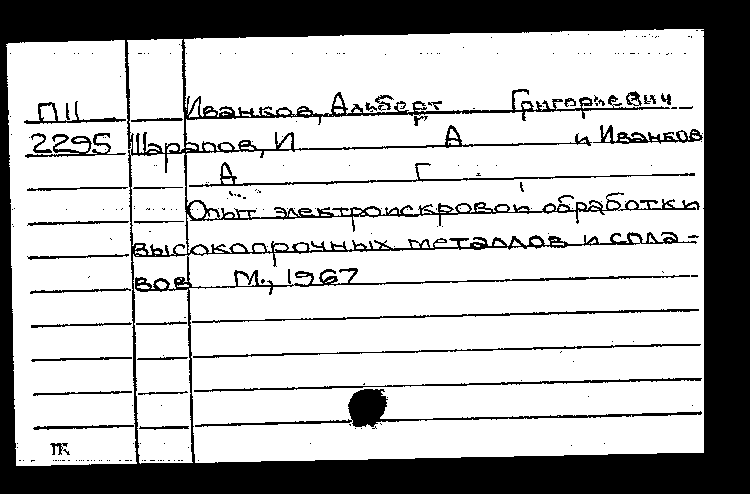 П11 Иванков, Альберт Григорьевич
2295 Шарапов, И А и Иванков
А Г
Опыт электроискровой обработки
высокопрочных металлов и спла-
вов М., 1967
ПК